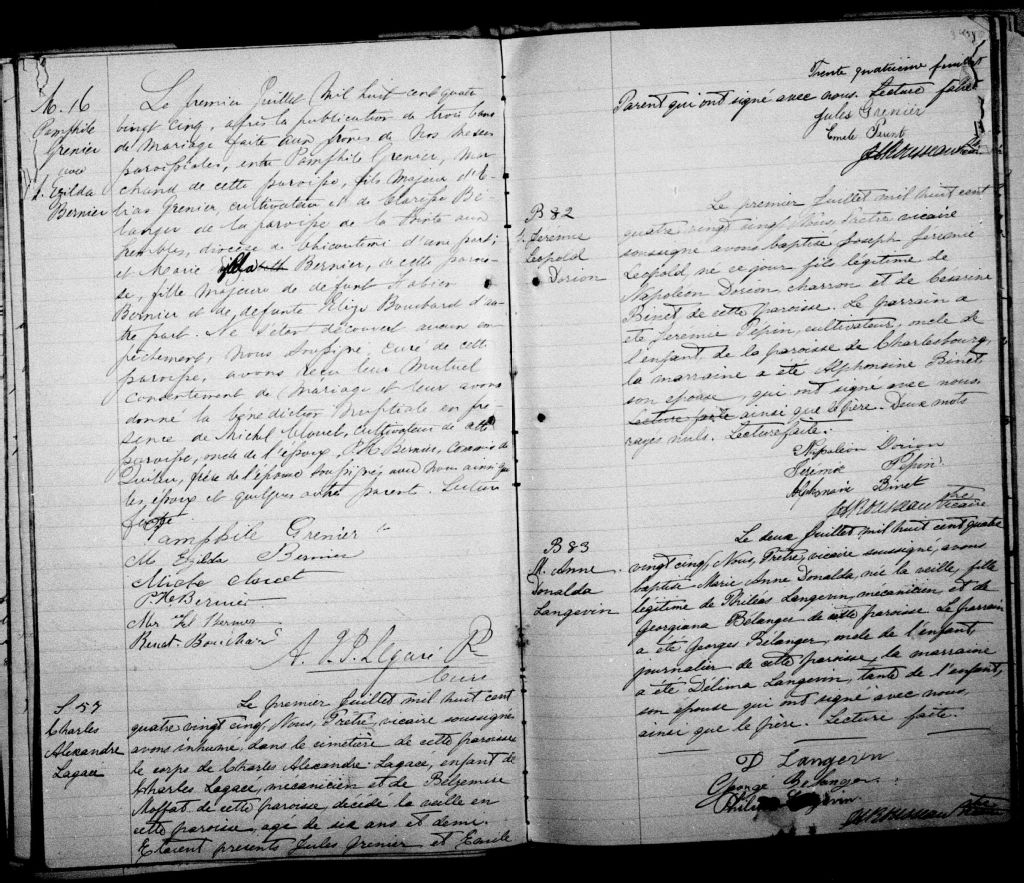 M. 16
Pamphile
Grenier
et
M. Exilda
Bernier
Le premier Juillet Mil huit cent quatre
vingt cinq, après la publication de trois bans
de mariage faite aux prônes de nos messes
paroissiales, entre Pamphile Grenier, mar-
chand de cette paroisse, fils majeur d'E-
lias Grenier, cultivateur et de Bé-
langer de la paroisse de la Pointe aux
Trembles, diocèse de Chicoutimi d'une part;
et Marie Bernier, de cette parois-
se, fille majeure de defunt Fabien
Bernier et de defunte Elize Bouchard d'au-
tre part. Ne s'etant découvert aucun em-
pêchement, Nous soussigné, curé de cette
paroisse, avons reçu leur mutuel
consentement de Mariage et leur avons
donné la bénédiction Nuptiale en pré-
sence de Michel Clouet, cultivateur de cette
paroisse, oncle de l'epoux, P. H. Bernier, Commis de
frère de l'épouse soussignés avec nous ainsi que
les epoux et quelques autres parent. Lecture
faite
Pamphile Grenier
M Exilda Bernier
Michel Clouet
P. H. Bernier
Bernier
Bouchard
Curé
S. 57
Charles
Alexandre
Lagacé
Le premier Juillet mil huit cent
quatre vingt cinq, Nous, Prêtre, vicaire soussigné,
avons inhumé, dans le cimetière de cette paroisse
le corps de Charles Alexandre Lagacé, enfant de
Charles Lagacé, mécanicien et de
Moffat de cette paroisse, décédé la veille en
cette paroisse, agé de six ans et demi.
Etaient presents Jules Grenier et Emile
Trente quatrième feuillet
Parent qui ont signé avec nous. Lecture faite.
Jules Grenier
Emile Parent
B 82
J. Jeremie
Leopold
Dorion
Le premier Juillet mil huit cent
quatre vingt cinq, Nous, Prêtre vicaire
soussigné avons baptisé Joseph Jeremie
Leopold, né ce jour, fils légitime de
Napoléon Dorion, charron et de Cesarine
Binet de cette paroisse. Le parrain a
été Jeremie Pepin, cultivateur, oncle de
l'enfant de la paroisse de Charlesbourg,
la marraine a été Alphonsine Binet
son epouse, qui ont signé avec nous
Lecture faite ainsi que le père. Deux mots
rayés nuls. Lecture faite.
Napoléon Dorion
Jeremie Pepin
Alphonsine Binet
Vicaire
B 83
M. Anne
Donalda
Langevin
Le deux Juillet mil huit cent quatre
vingt cinq, Nous, Prêtre, vicaire soussigné, avons
baptisé Marie Anne Donalda, née la veille, fille
légitime de Philéas Langevin, mécanicien et de
Georgiana Bélanger de cette paroisse. Le parrain
a été Georges Bélanger, oncle de l'enfant,
journalier de cette paroisse, la marraine
a été Délima Langevin, tante de l'enfant,
son epouse qui ont signé avec nous,
ainsi que le père. Lecture faite.
D Langevin
George Belanger